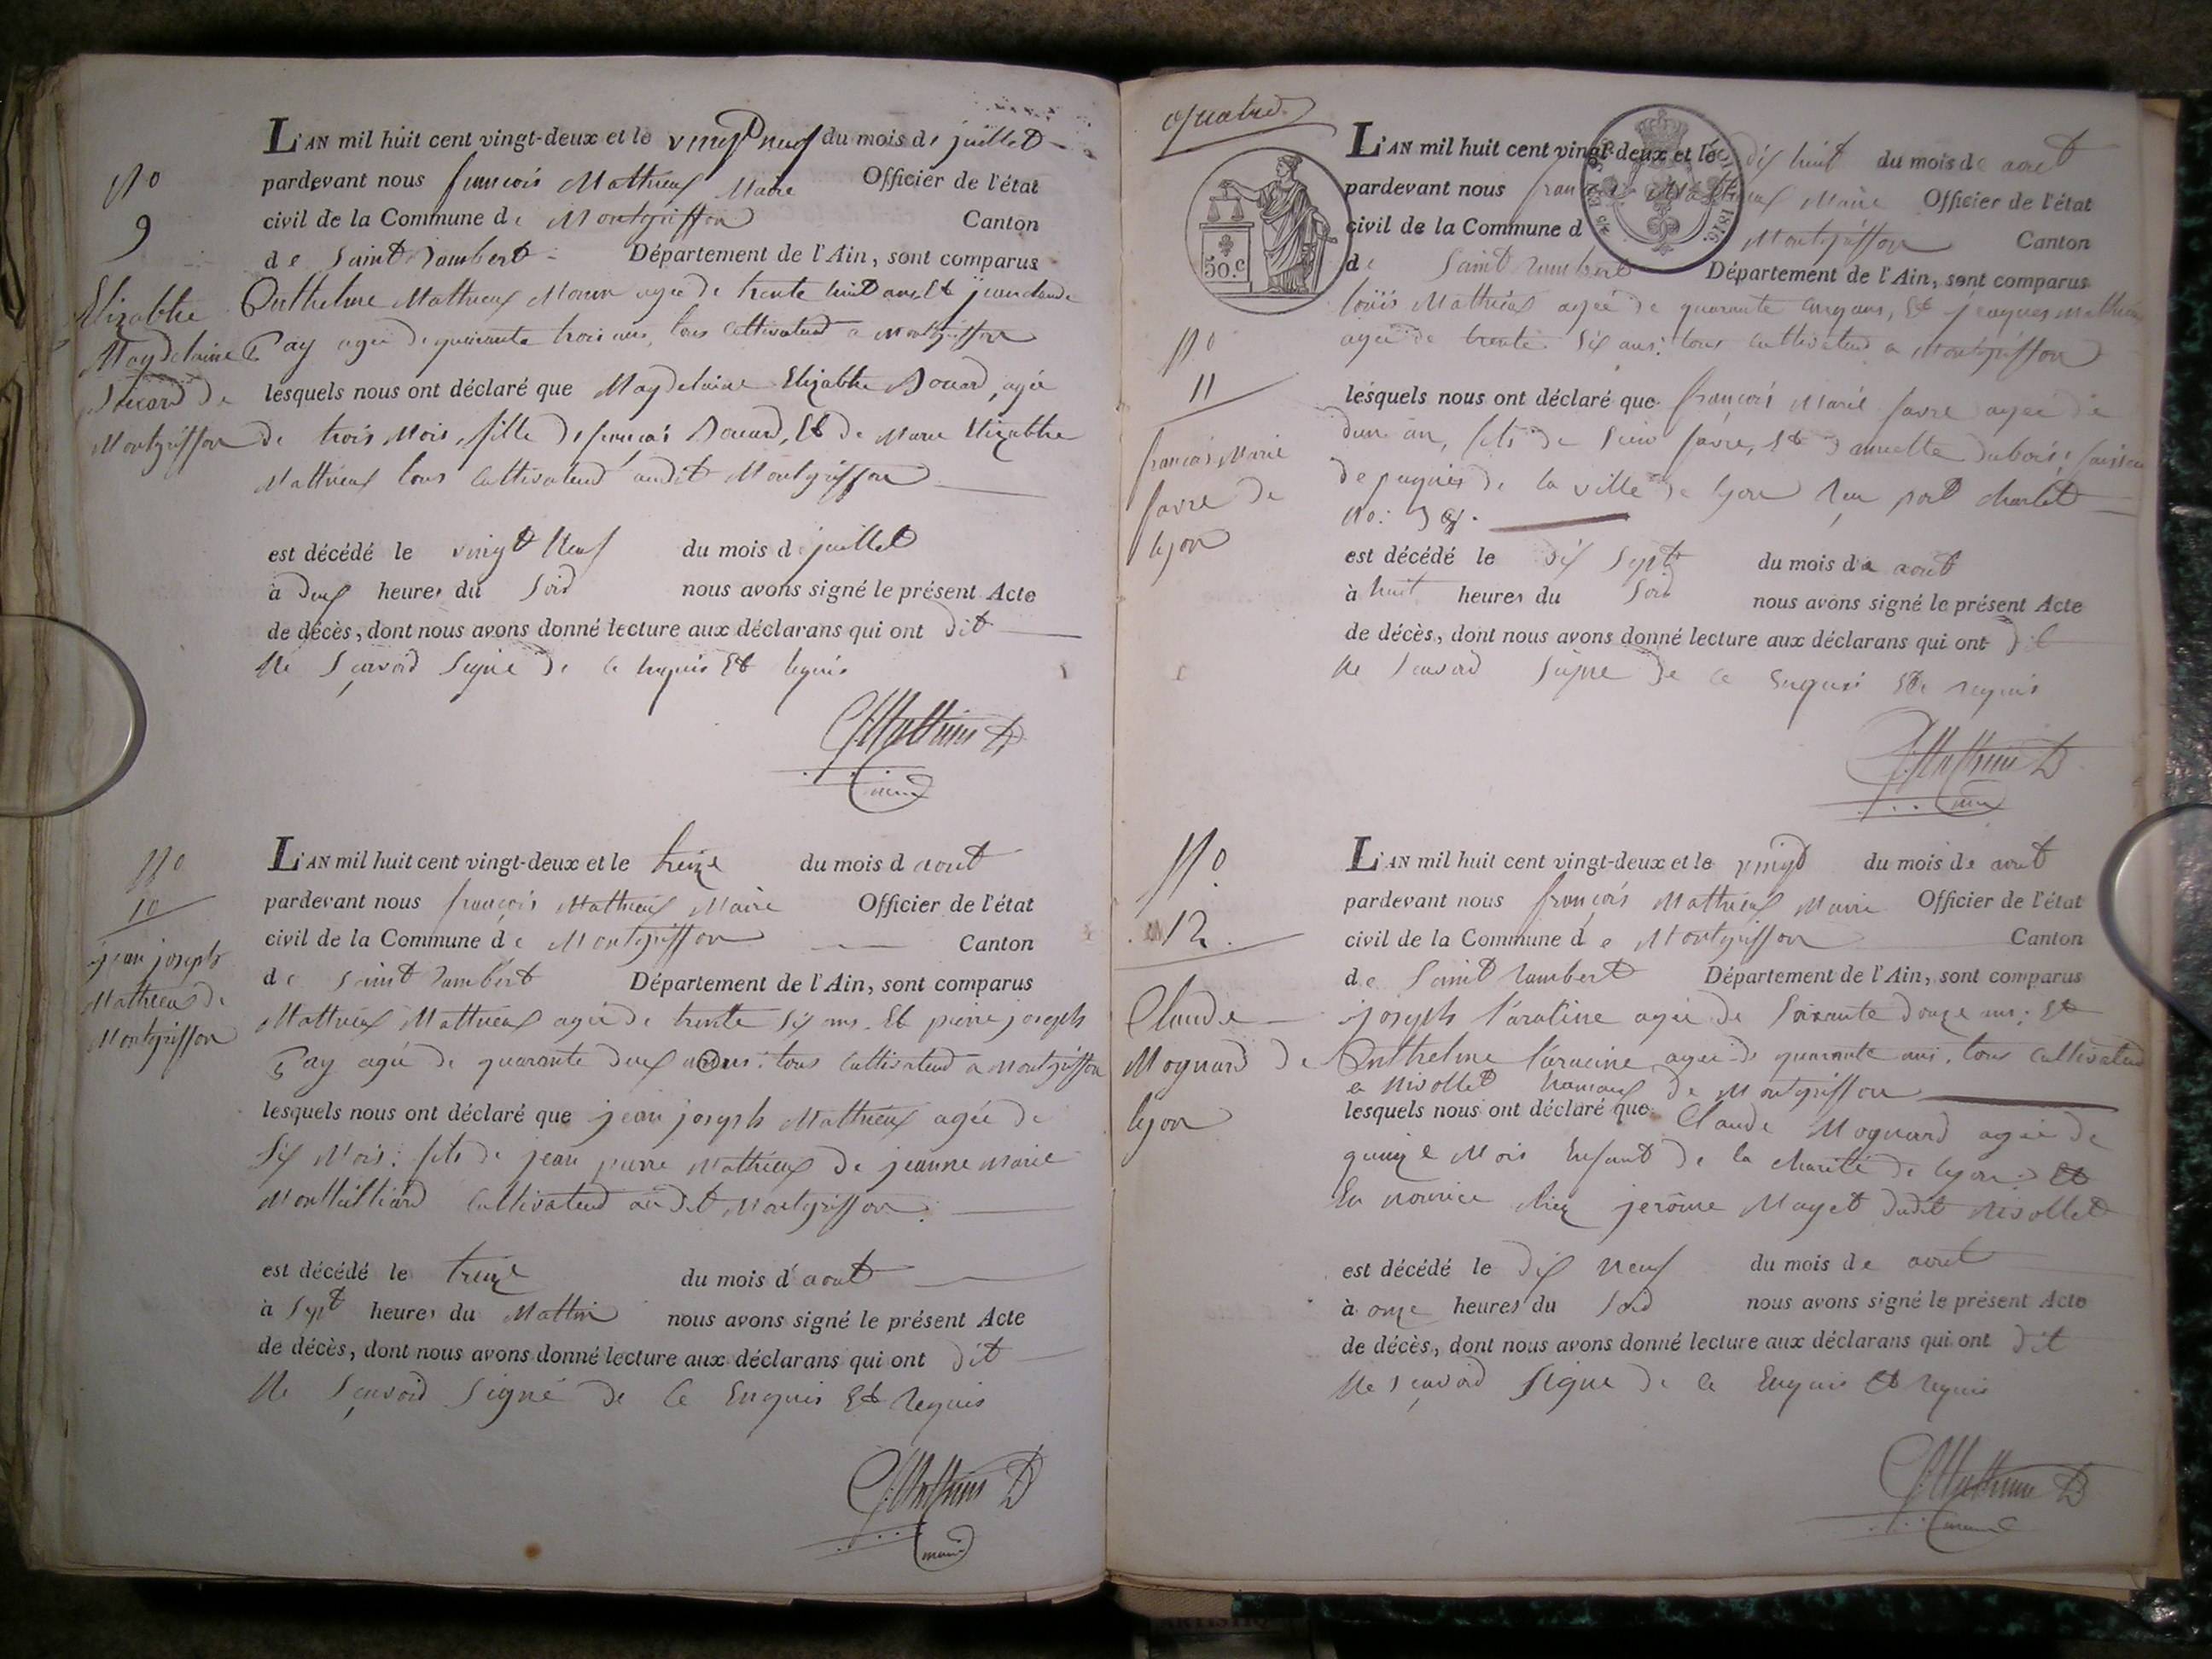 No
9
Elizabthe
Magdelaine
Douard de
Montgriffon
L'AN mil huit cent vingt-deux et le vingt neuf du mois de juillet
pardevant nous françois Mathieux Maire Officier de l'état
civil de la Commune de Montgriffon Canton
de Saint Rambert Département de l'Ain, sont comparus
Onthelme Mathieux agée de trente huit ans Et jean claude
Gay agée de quarante trois ans, tous Cultivateur a Montgriffon
lesquels nous ont déclaré que Magdelaine Elizabthe Douard, agée
de trois Mois, fille de françois Douard, Et de Marie Elizabthe
Mathieux tous Cultivateur audit Montgriffon
est décédé le vingt Neuf du mois de juillet
à deux heures du Soir nous avons signé le présent Acte
de décès, dont nous avons donné lecture aux déclarans qui ont dit
Ne Sçavoir Signé de ce Enquis Et Requis
No
10
jean joseph
Mathieux de
Montgriffon
L'AN mil huit cent vingt-deux et le treize du mois d aout
pardevant nous françois Mathieux Maire Officier de l'état
civil de la Commune de Montgriffon Canton
de Saint Rambert Département de l'Ain, sont comparus
Mathieux Mathieux agée de trente Six ans Et pierre joseph
Gay agée de quarante deux ans: tous Cultivateur a Montgriffon
lesquels nous ont déclaré que jean joseph Mathieux agée de
Six Mois: fils de jean pierre Mathieux de jeanne Marie
Cultivateur audit Montgriffon
est décédé le treize du mois d'aout
à Sept heures du Mattin nous avons signé le présent Acte
de décès, dont nous avons donné lecture aux déclarans qui ont dit
Ne Sçavoir Signé de Ce Enquis Et Requis
quatre
50.c
1816
No
11
françois Marie
favre de
lyon
L'AN mil huit cent vingt-deux et le dix huit du mois de aout
pardevant nous françois Mathieux Maire Officier de l'état
civil de la Commune d Montgriffon Canton
de Saint Rambert Département de l'Ain, sont comparus
louis Mathieux agée de quarante cinq ans, Et jacques Mathieux
agée de trente Six ans: tous cultivateur a Montgriffon
lesquels nous ont déclaré que françois Marie favre agée de
dun an, fils de favre, Et d'annette dubois,
de la ville de lyon port charlet
No:
est décédé le dix Sept du mois de aout
à huit heures du Soir nous avons signé le présent Acte
de décès, dont nous avons donné lecture aux déclarans qui ont dit
Ne Scavoir Signe de Ce Enquis Et requis
No
12
Claude
Mognard de
lyon
L'AN mil huit cent vingt-deux et le vingt du mois de aout
pardevant nous françois Mathieux Maire Officier de l'état
civil de la Commune de Montgriffon Canton
de Saint Rambert Département de l'Ain, sont comparus
joseph agée de Soixante douze ans: Et
Onthelme agée de quarante ans. tous Cultivateur
a Nivollet hameaux de Montgriffon
lesquels nous ont déclaré que Claude Mognard agée de
quinze Mois Enfant de la charité de lyon: Et
En nourrice chez jerôme Mayet dudit Nivollet
est décédé le dix Neuf du mois de aout
à onze heures du Soir nous avons signé le présent Acte
de décès, dont nous avons donné lecture aux déclarans qui ont dit
Ne Sçavoir Signe de Ce Enquis Et Requis